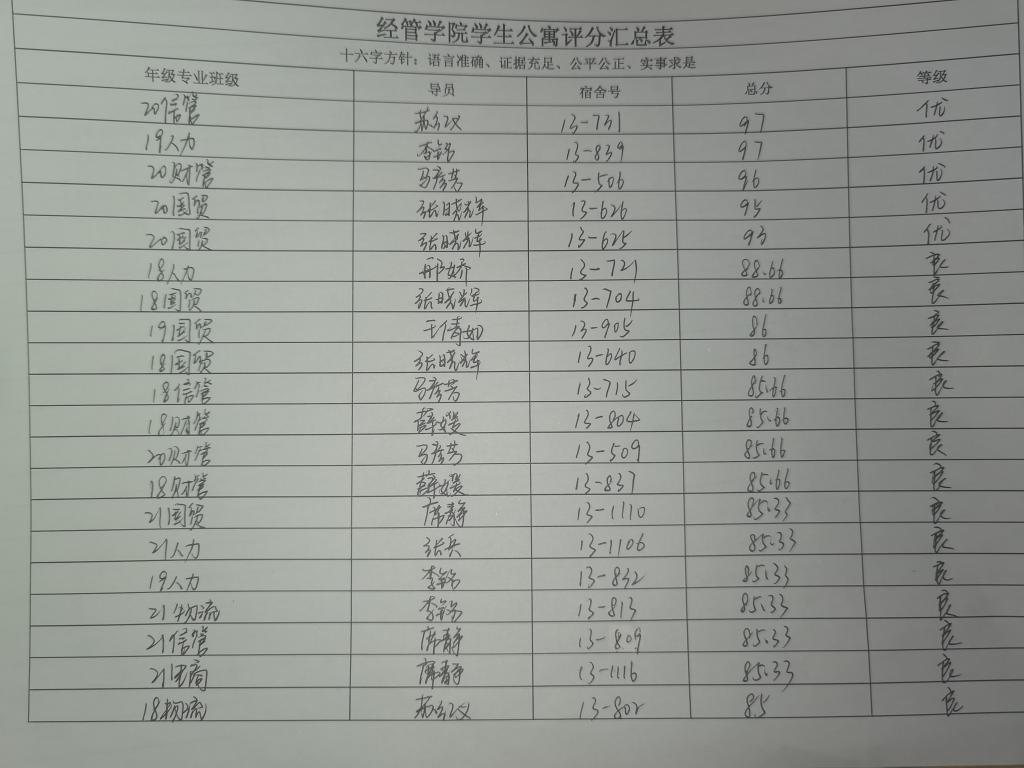 经管学院学生公寓评分汇总表
十六字方针：语言准确、证据充足、公平公正、实事求是
年级专业班级 导员 宿舍号 总分 等级
20信管 苏红汉 13-731 97 优
19人力 李铭 13-839 97 优
20财管 马彦芳 13-506 96 优
20国贸 张晓辉 13-626 95 优
20国贸 张晓辉 13-625 93 优
18人力 邢娇 13-721 88.66 良
18国贸 张晓辉 13-704 88.66 良
19国贸 王倩如 13-905 86 良
18国贸 张晓辉 13-640 86 良
18信管 马彦芳 13-715 85.66 良
18财管 薛媛 13-804 85.66 良
20财管 马彦芳 13-509 85.66 良
18财管 薛媛 13-837 85.66 良
21国贸 席静 13-1110 85.33 良
21人力 张兵 13-1106 85.33 良
19人力 李铭 13-832 85.33 良
21物流 李铭 13-813 85.33 良
21信管 席静 13-809 85.33 良
21电商 席静 13-1116 85.33 良
18物流 苏红汉 13-802 85 良